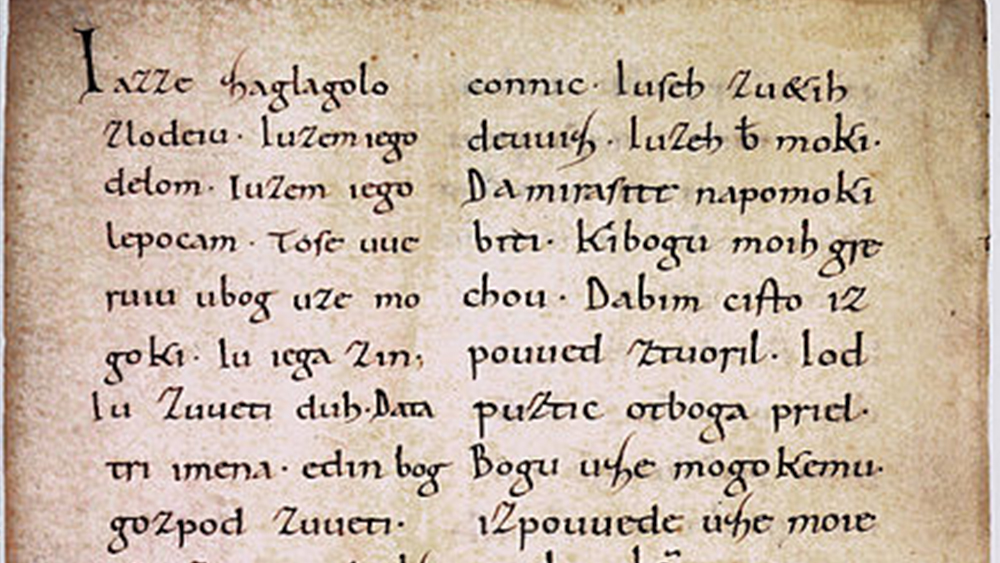 Iazze zaglagolo
zlodeiu· Iuzem iego
delom· Iuzem iego
lepocam· Tose uue
ruiu ubog uze mo
goki· Iu iega zin;
Iu zuueti duh· Data
tri imena· edin bog
gozpod zuueti·
connic· Iuseh zu&ih
deuuiz· Iuzeh ƀ moki·
Da mirasite napomoki
biti· Kibogu moih gre
chou· Dabim cisto iz
pouued ztuoril· Iod
puztic otboga priel·
Bogu uze mogokemu·
izpouuede uze moie